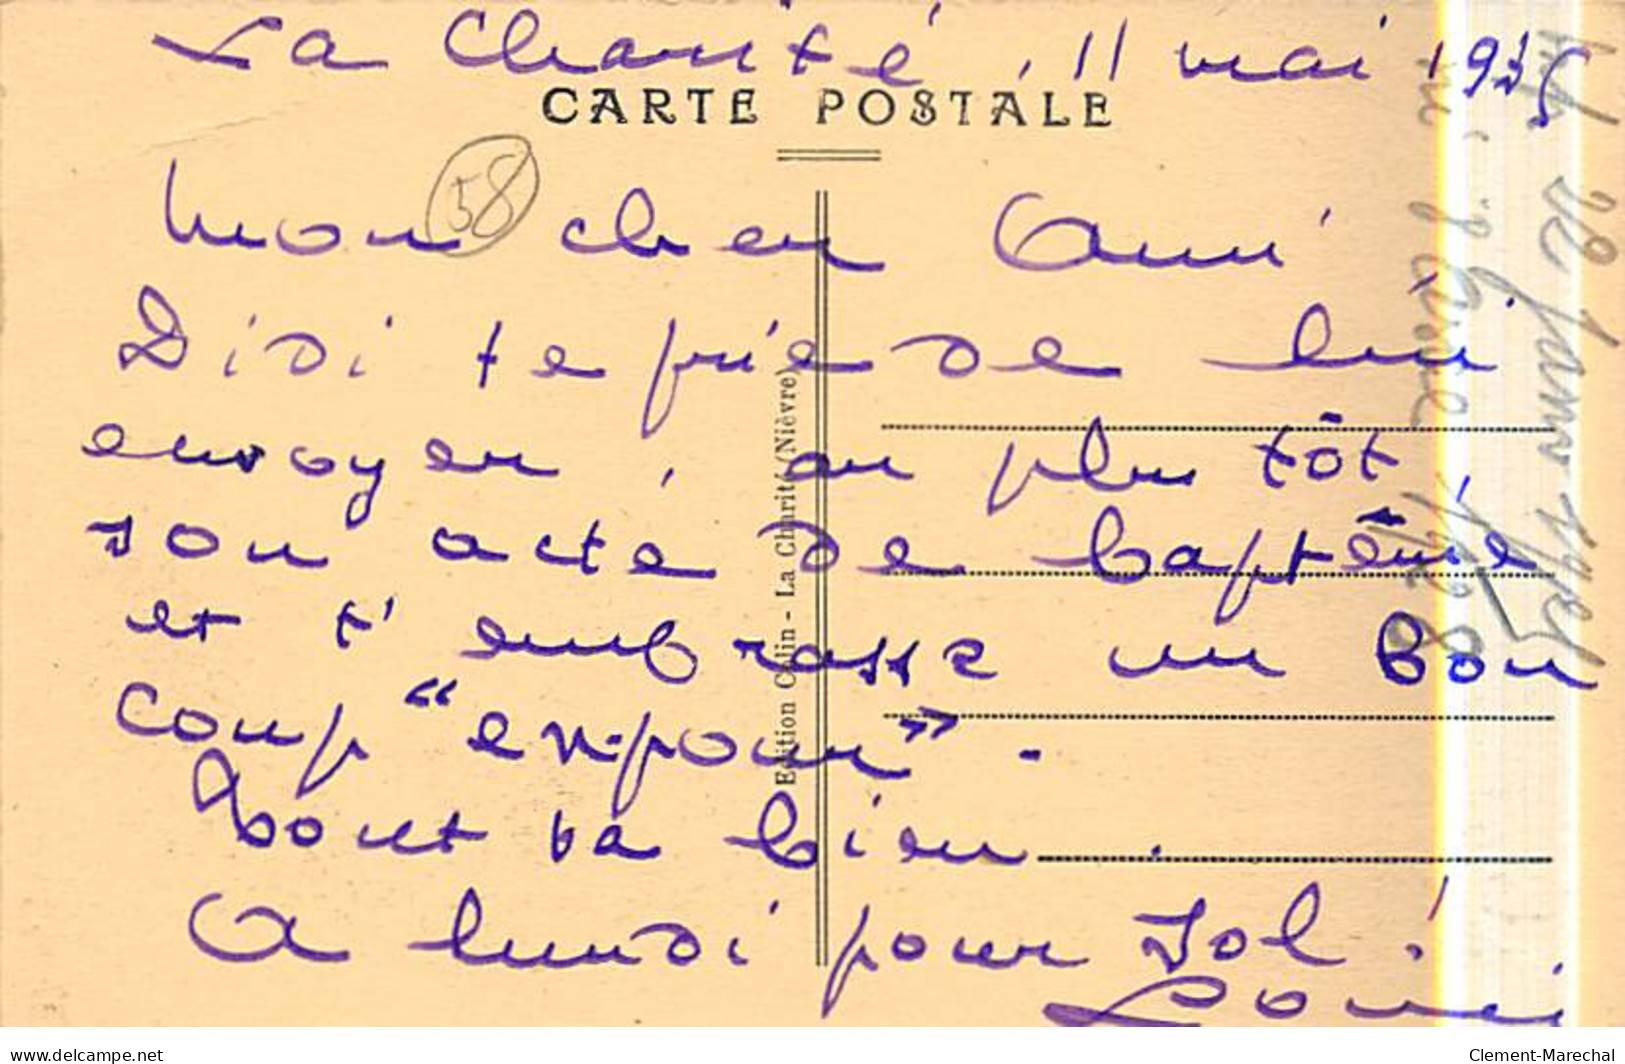 La Charité, 11 mai 1935
CARTE POSTALE
58
Mon cher Ami
Didi te prie de lui
envoyer, au plus tôt,
son acte de baptême
et t'embrasse un bon
coup "en pour".
Tout va bien.
A lundi pour Sol!
Louis
Edition Colin - La Charité (Nièvre)
22
1928
www.delcampe.net
Clement-Marechal